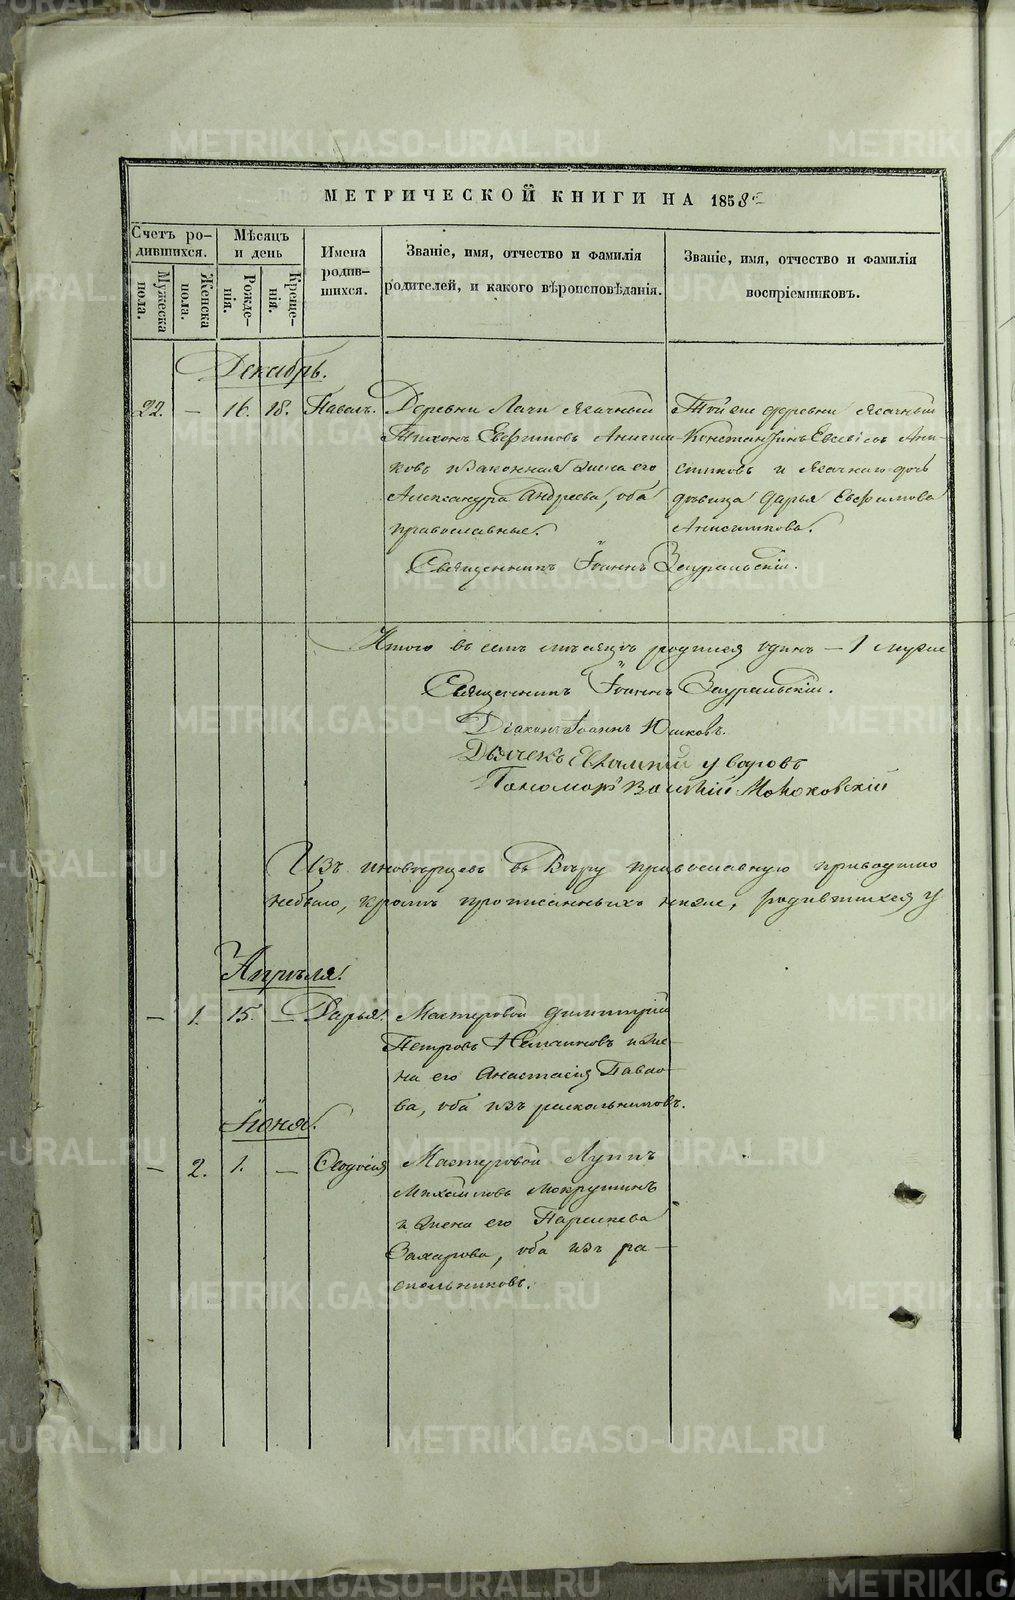 МЕТРИЧЕСКОЙ КНИГИ НА 1858
Счетъ ро-
дившихся.
Мужеска
пола.
Женска
пола.
Мѣсяцъ
и день
Рожде-
нія.
Креще-
нія.
Имена
родив-
шихся.
Званіе, имя, отчество и фамилія
родителей, и какого вѣроисповѣданія.
Званіе, имя, отчество и фамилія
воспріемниковъ.
Декабрь.
22. — 16. 18. Павелъ.
Деревни Лачи Ясачный
Тихонъ Евфимовъ
ковъ и законная жена его
Александра Андреева, оба
православные.
Той же деревни Ясачный
Константинъ Евсѣевъ Ани-
симковъ и Ясачнаго дочь
дѣвица Дарья Евфимова
Анисимкова.
Священникъ Іоаннъ Зауральскій.
Итого въ семъ мѣсяцѣ родился одинъ — 1 муже
Священникъ Іоаннъ Зауральскій.
Діаконъ Іоаннъ Юшковъ.
Дьячекъ Евлампій Уваровъ
Пономарь
Изъ иновѣрцевъ въ Вѣру православную
небыло, кромѣ прописанныхъ ниже, родившихся у
Апрѣля.
— 1. 15. — Дарья.
Мастеровой Димитрій
Петровъ и же-
на его Анастасія Павло-
ва, оба изъ раскольниковъ.
Іюня.
— 2. 1. — Ѳеодосія
Мастеровой Луппъ
Михайловъ Мокрушинъ
и жена его Параскева
Захарова, оба изъ ра-
скольниковъ.
METRIKI.GASO-URAL.RU